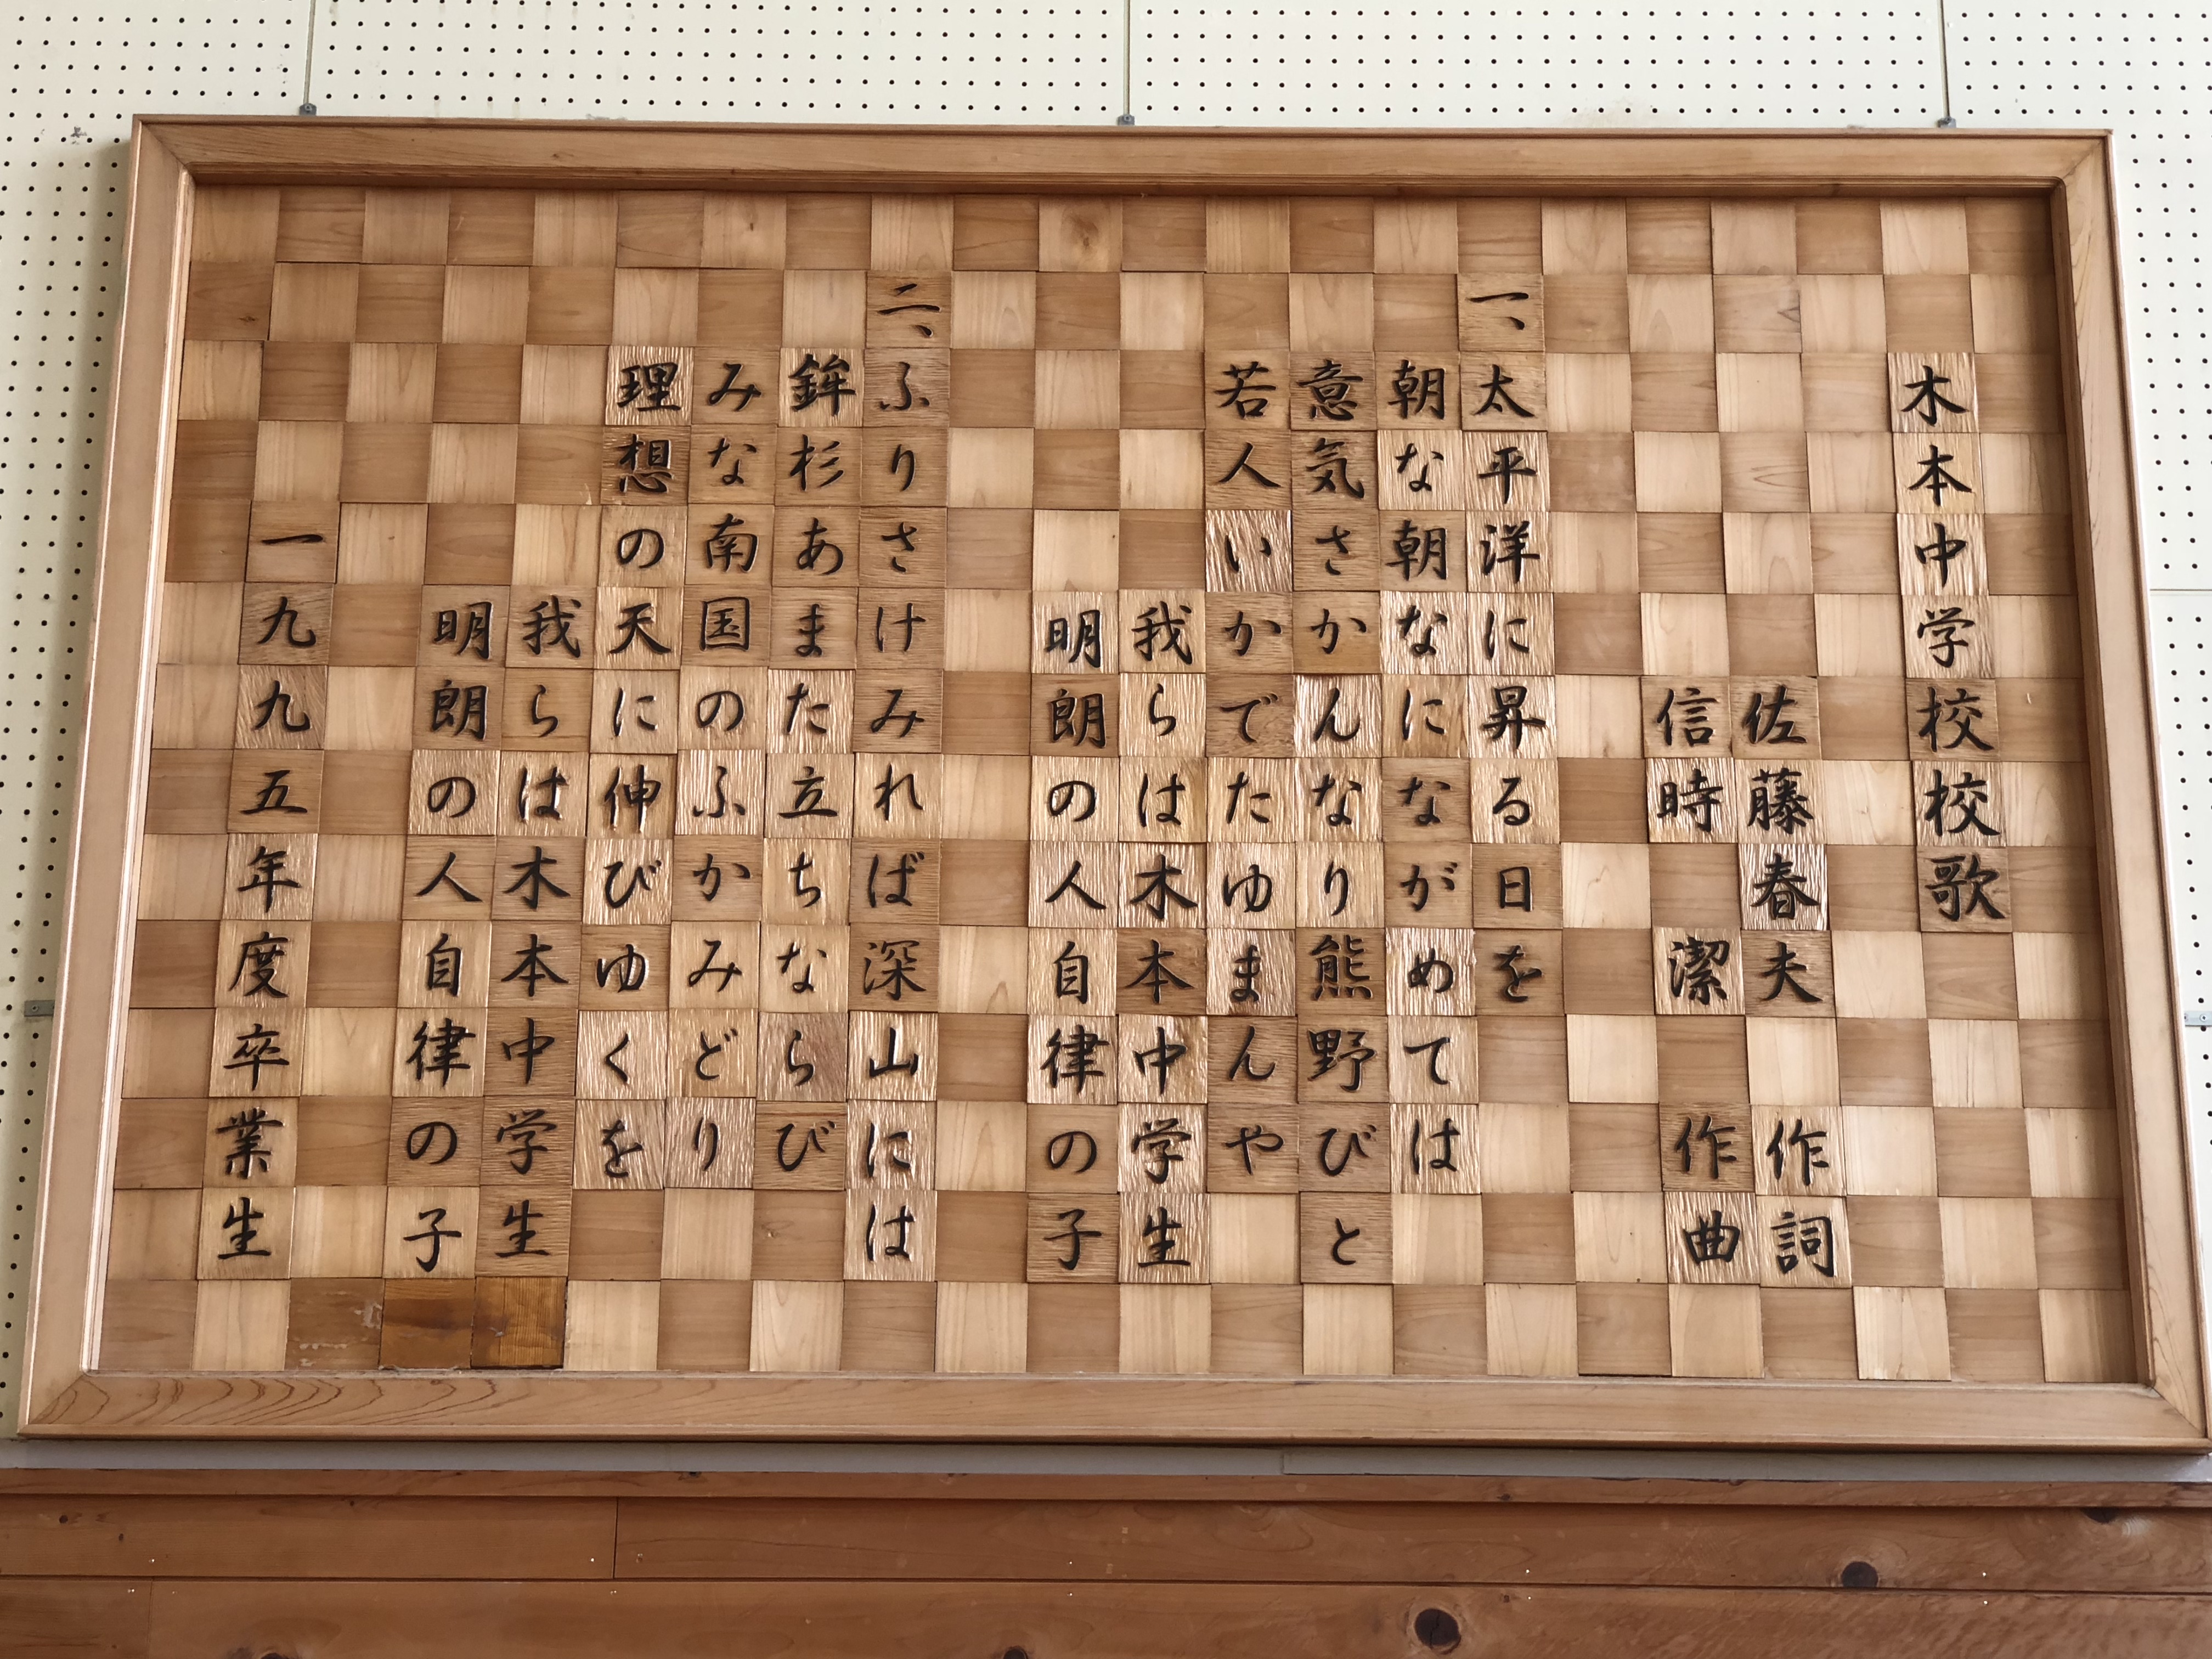 木本中学校校歌
佐藤春夫 作詞
信時 潔 作曲
一、太平洋に昇る日を
朝な朝なにながめては
意気さかんなり熊野びと
若人いかでたゆまんや
我らは木本中学生
明朗の人自律の子
二、ふりさけみれば深山には
鉾杉あまた立ちならび
みな南国のふかみどり
理想の天に伸びゆくを
我らは木本中学生
明朗の人自律の子
一九九五年度卒業生